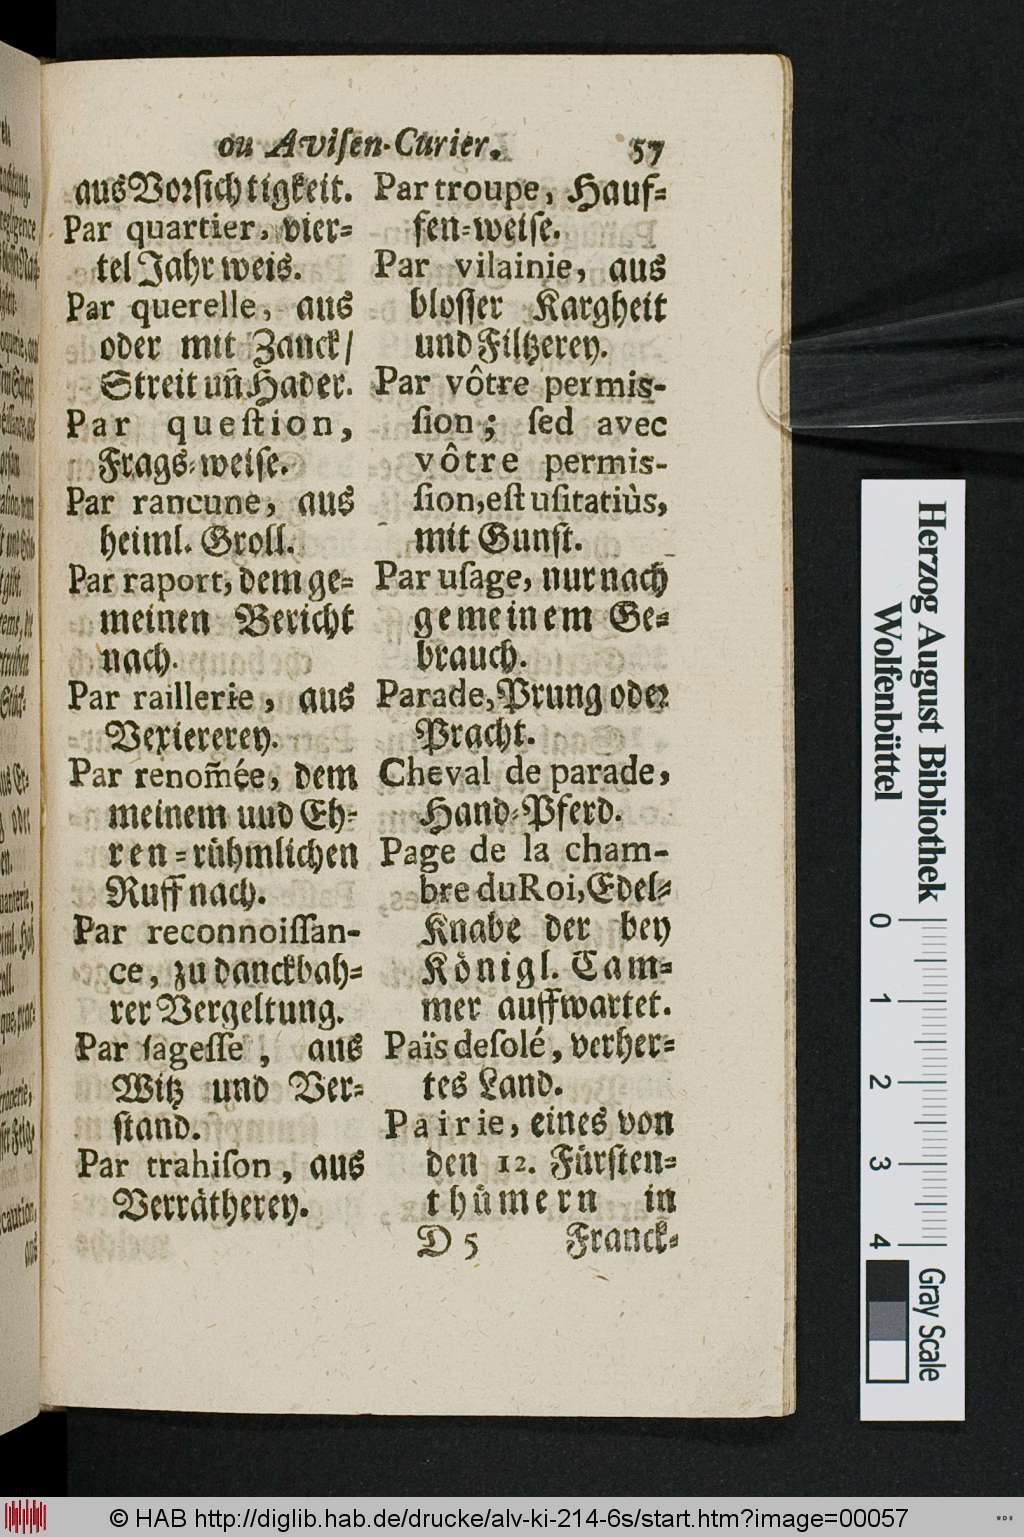 ou Aviſen-Curier. 57
aus Vorſichtigkeit.
Par quartier, vier=
tel Jahr weis.
Par querelle, aus
oder mit Zanck/
Streit uñ Hader.
Par queſtion,
Frags=weiſe.
Par rancune, aus
heiml. Groll.
Par raport, dem ge=
meinen Bericht
nach.
Par raillerie, aus
Vexiererey.
Par renom̃ée, dem
meinem uud Eh=
ren=rühmlichen
Ruff nach.
Par reconnoiſſan-
ce, zu danckbah=
rer Vergeltung.
Par ſageſſe, aus
Witz und Ver=
ſtand.
Par trahiſon, aus
Verrätherey.
Par troupe, Hauf=
fen=weiſe.
Par vilainie, aus
bloſſer Kargheit
und Filtzerey.
Par vôtre permis-
ſion; ſed avec
vôtre permis-
ſion, eſt uſitatiùs,
mit Gunſt.
Par uſage, nur nach
gemeinem Ge=
brauch.
Parade, Prung oder
Pracht.
Cheval de parade,
Hand=Pferd.
Page de la cham-
bre du Roi, Edel=
Knabe der bey
Königl. Cam=
mer auffwartet.
Païs deſolé, verher=
tes Land.
Pairie, eines von
den 12. Fürſten=
thümern in
D 5 Franck=
Herzog August Bibliothek
Wolfenbüttel
0 1 2 3 4
Gray Scale
© HAB http://diglib.hab.de/drucke/alv-ki-214-6s/start.htm?image=00057